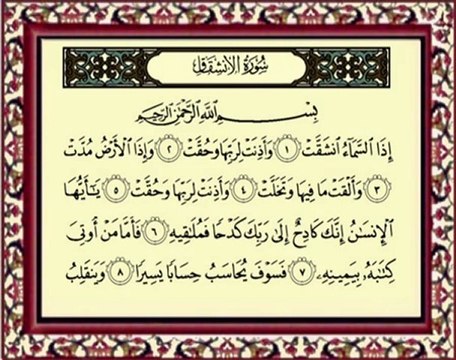 سُورَةُ الانشِقَاقِ
بِسْمِ اللَّهِ الرَّحْمَٰنِ الرَّحِيمِ
إِذَا السَّمَاءُ انشَقَّتْ ١ وَأَذِنَتْ لِرَبِّهَا وَحُقَّتْ ٢ وَإِذَا الْأَرْضُ مُدَّتْ
٣ وَأَلْقَتْ مَا فِيهَا وَتَخَلَّتْ ٤ وَأَذِنَتْ لِرَبِّهَا وَحُقَّتْ ٥ يَٰٓأَيُّهَا
الْإِنسَٰنُ إِنَّكَ كَادِحٌ إِلَىٰ رَبِّكَ كَدْحًا فَمُلَٰقِيهِ ٦ فَأَمَّا مَنْ أُوتِىَ
كِتَٰبَهُۥ بِيَمِينِهِۦ ٧ فَسَوْفَ يُحَاسَبُ حِسَابًا يَسِيرًا ٨ وَيَنقَلِبُ